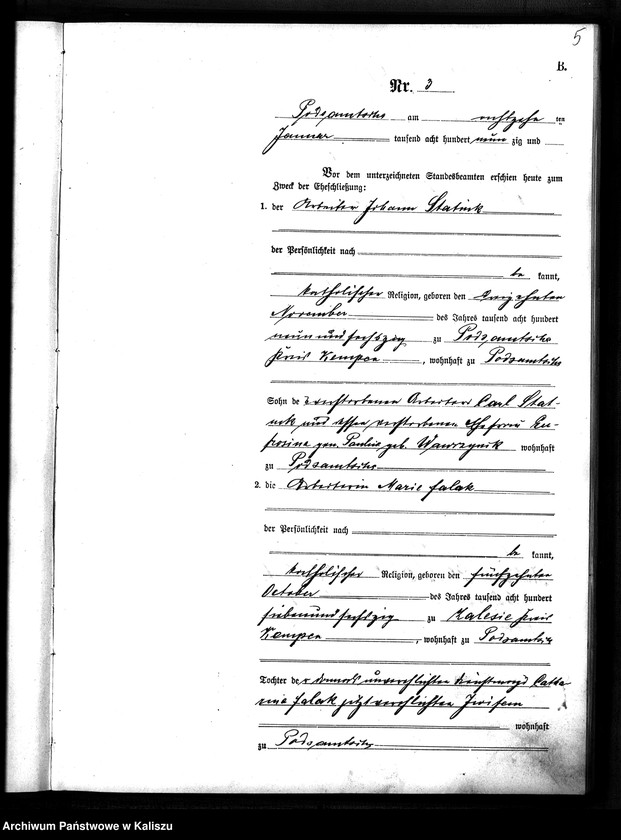 5
B.
Nr. 3
Podsamtsche am achtzehn ten
Januar tausend acht hundert neun zig und
Vor dem unterzeichneten Standesbeamten erschien heute zum
Zweck der Eheschließung:
1. der Arbeiter Johann Statnik
der Persönlichkeit nach
be kannt,
katholischer Religion, geboren den
November des Jahres tausend acht hundert
neun und sechszig zu Podsamtsche
Kreis Kempen, wohnhaft zu Podsamtsche
Sohn des verstorbenen Arbeiters Carl Stat-
nik und dessen verstorbenen Ehefrau Eu-
frosine gen. Pauline geb. Wawrzynik wohnhaft
zu Podsamtsche
2. die Arbeiterin Marie Jalak
der Persönlichkeit nach
be kannt,
katholischer Religion, geboren den fünfzehnten
October des Jahres tausend acht hundert
siebenundsechszig zu Zalesie Kreis
Kempen, wohnhaft zu Podsamtsche
Tochter der damals unverehlichten Dienstmagd Catha
rina Jalak jetzt verehlichten
wohnhaft
zu Podsamtsche
Archiwum Państwowe w Kaliszu